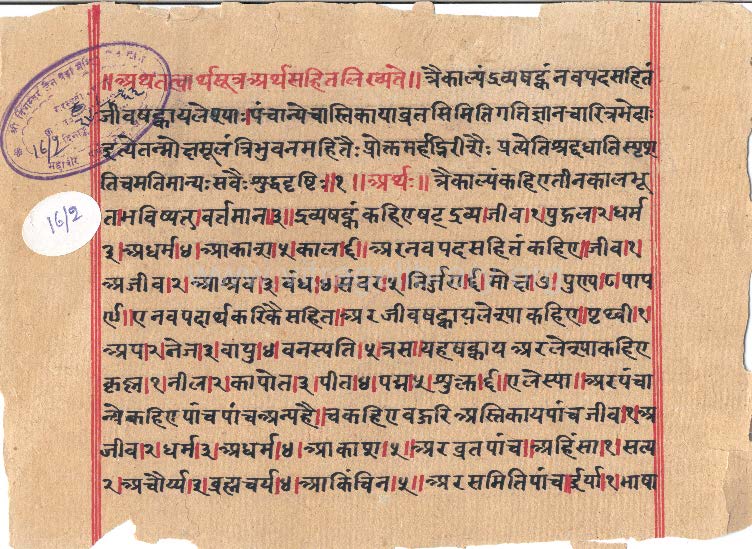 ॥अथतत्वार्थसूत्रअर्थसहितलिख्यते॥ त्रैकाल्यंद्रव्यषट्कंनवपदसहितं
जीवषट्कायलेश्याः।पंचान्येचास्तिकायाव्रतसिमितिगतिज्ञानचारित्रभेदाः
इत्येतन्मोक्षमूलंत्रिभुवनमहितैःप्रोक्तमर्हद्भिरीशैः प्रत्येतिश्रद्दधातिस्पृश
तिचमतिमान्यःसवैःशुद्धदृष्टिः॥१॥अर्थः॥त्रैकाल्यंकहिएतीनकालभू
तभविष्यतवर्तमान३॥द्रव्यषट्कंकहिएषट्द्रव्यजीव।१पुद्गल।२।धर्म
३।अधर्म।४।आकाश।५।काल।६।अरनवपदसहितंकहिए।जीव।१।
अजीव।२।आश्रव।३।बंध।४।संवर।५।निर्जरा।६।मोक्ष।७।पुण्य।८।पाप
।९।एनवपदार्थकरिकैसहित।अरजीवषट्कायलेश्याकहिए।पृथ्वी।१
अप।२।तेज।३।वायु।४।वनस्पति।५।त्रस।यहषट्कायअरलेश्याकहिए
कृष्ण।१।नील।२।कापोत।३।पीत।४।पद्म।५।शुक्ल।६।एलेस्पा॥अरपंचा
न्येकहिएपांचपांचअन्यहै।चकहिएवहुरिअस्तिकायपांचजीव।१।अ
जीव।२।धर्म।३।अधर्म।४।आकाश।५।अरव्रतपांच।अहिंसा।१।सत्य
२।अचौर्य्य।३।ब्रह्मचर्य।४।आकिंचिन।५॥अरसमितिपांच।ईर्या।१।भाषा
16/2
16/2